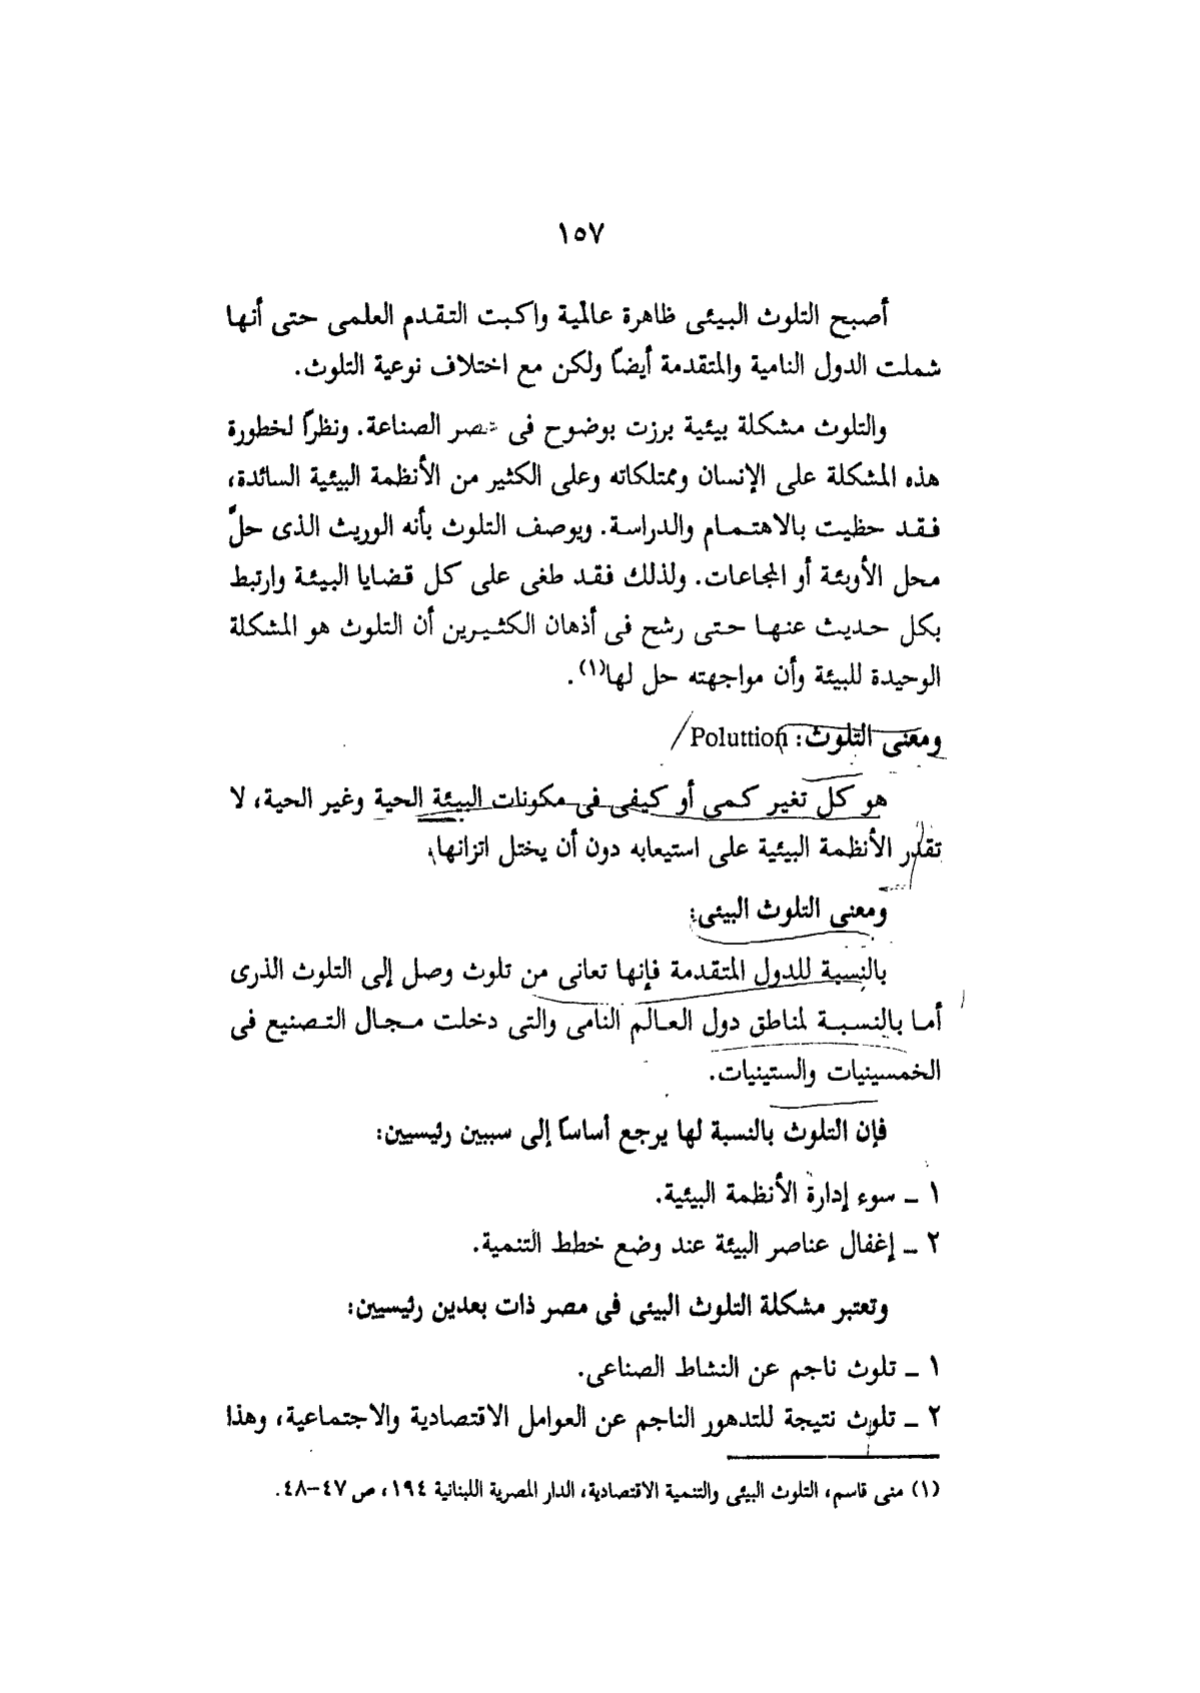 ١٥٧
أصبح التلوث البيئى ظاهرة عالمية واكبت التقدم العلمى حتى أنها
شملت الدول النامية والمتقدمة أيضًا ولكن مع اختلاف نوعية التلوث.
والتلوث مشكلة بيئية برزت بوضوح فى عصر الصناعة. ونظرًا لخطورة
هذه المشكلة على الإنسان وممتلكاته وعلى الكثير من الأنظمة البيئية السائدة،
فقد حظيت بالاهتمام والدراسة. ويوصف التلوث بأنه الوريث الذى حلَّ
محل الأوبئة أو المجاعات. ولذلك فقد طغى على كل قضايا البيئة وارتبط
بكل حديث عنها حتى رشح فى أذهان الكثيرين أن التلوث هو المشكلة
الوحيدة للبيئة وأن مواجهته حل لها(١).
ومعنى التلوث: Poluttion
هو كل تغير كمى أو كيفى فى مكونات البيئة الحية وغير الحية، لا
تقدر الأنظمة البيئية على استيعابه دون أن يختل اتزانها.
ومعنى التلوث البيئى:
بالنسبة للدول المتقدمة فإنها تعانى من تلوث وصل إلى التلوث الذرى
أما بالنسبة لمناطق دول العالم النامى والتى دخلت مجال التصنيع فى
الخمسينيات والستينيات.
فإن التلوث بالنسبة لها يرجع أساسًا إلى سببين رئيسيين:
١ ـ سوء إدارة الأنظمة البيئية.
٢ ـ إغفال عناصر البيئة عند وضع خطط التنمية.
وتعتبر مشكلة التلوث البيئى فى مصر ذات بعدين رئيسيين:
١ ـ تلوث ناجم عن النشاط الصناعى.
٢ ـ تلوث نتيجة للتدهور الناجم عن العوامل الاقتصادية والاجتماعية، وهذا
(١) منى قاسم، التلوث البيئى والتنمية الاقتصادية، الدار المصرية اللبنانية ١٩٤، ص ٤٧–٤٨.